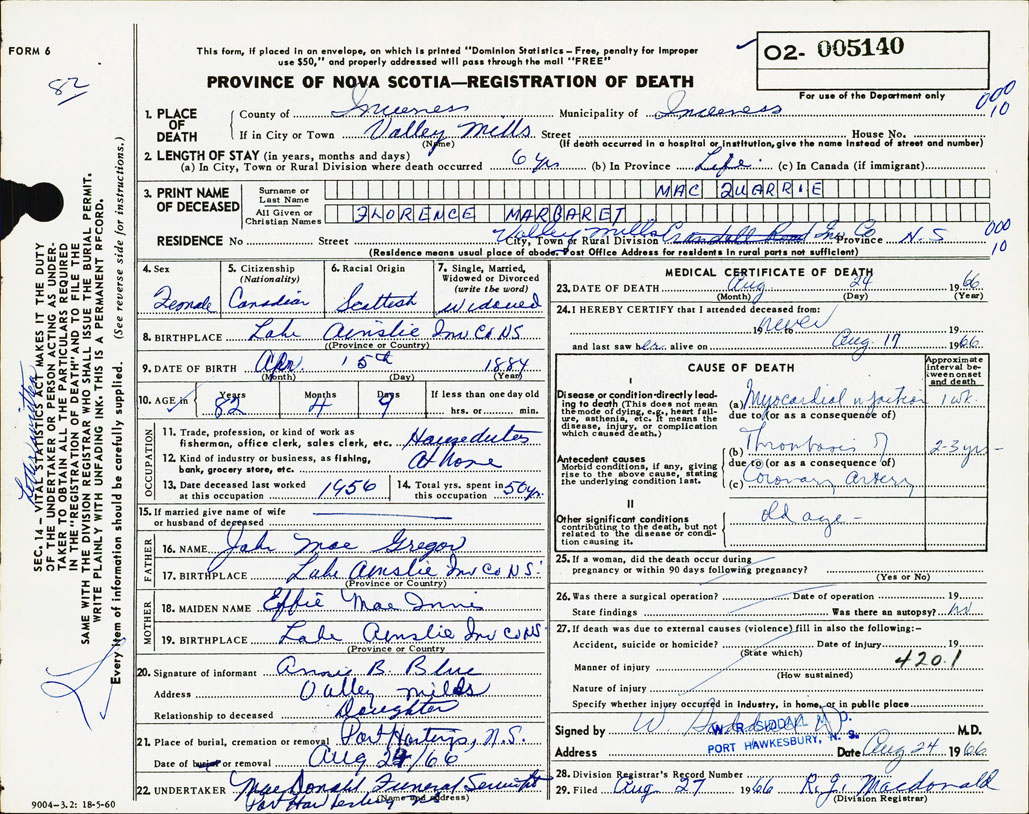 FORM 6
82
This form, if placed in an envelope, on which is printed "Dominion Statistics – Free, penalty for improper
use $50," and properly addressed will pass through the mail "FREE"
PROVINCE OF NOVA SCOTIA—REGISTRATION OF DEATH
O2- 005140
For use of the Department only
000
10
SEC. 14 – VITAL STATISTICS ACT MAKES IT THE DUTY
OF THE UNDERTAKER OR PERSON ACTING AS UNDER-
TAKER TO OBTAIN ALL THE PARTICULARS REQUIRED
IN THE "REGISTRATION OF DEATH" AND TO FILE THE
SAME WITH THE DIVISION REGISTRAR WHO SHALL ISSUE THE BURIAL PERMIT.
WRITE PLAINLY WITH UNFADING INK. THIS IS A PERMANENT RECORD.
Every item of information should be carefully supplied. (See reverse side for instructions.)
1. PLACE OF DEATH
County of Inverness Municipality of Inverness
If in City or Town Valley Mills Street House No.
(Name) (If death occurred in a hospital or institution, give the name instead of street and number)
2. LENGTH OF STAY (in years, months and days)
(a) In City, Town or Rural Division where death occurred 6 yrs (b) In Province Life. (c) In Canada (if immigrant)
3. PRINT NAME OF DECEASED
Surname or Last Name MAC QUARRIE
All Given or Christian Names FLORENCE MARGARET
RESIDENCE No Street Valley Mills City, Town or Rural Division Inv Co Province N.S
000
10
(Residence means usual place of abode. Post Office Address for residents in rural parts not sufficient)
4. Sex Female
5. Citizenship (Nationality) Canadian
6. Racial Origin Scottish
7. Single, Married, Widowed or Divorced (write the word) Widowed
8. BIRTHPLACE Lake Ainslie Inv Co NS
(Province or Country)
9. DATE OF BIRTH Apr. 15th 1884
(Month) (Day) (Year)
10. AGE in Years 82 Months 4 Days 9 If less than one day old hrs. or min.
OCCUPATION
11. Trade, profession, or kind of work as fisherman, office clerk, sales clerk, etc. House duties
12. Kind of industry or business, as fishing, bank, grocery store, etc. At home
13. Date deceased last worked at this occupation 1956
14. Total yrs. spent in this occupation 50 yr.
15. If married give name of wife or husband of deceased
FATHER
16. NAME John Mac Gregor
17. BIRTHPLACE Lake Ainslie Inv Co NS.
(Province or Country)
MOTHER
18. MAIDEN NAME Effie Mac Innis
19. BIRTHPLACE Lake Ainslie Inv Co NS
(Province or Country
20. Signature of informant Annie B. Blue
Address Valley Mills
Relationship to deceased Daughter
21. Place of burial, cremation or removal Port Hastings, N.S.
Date of burial or removal Aug 24/66
22. UNDERTAKER MacDonald Funeral Service
(Name and address)
Port Hawkesbury NS
9004-3.2: 18-5-60
MEDICAL CERTIFICATE OF DEATH
23. DATE OF DEATH Aug. 24 1966
(Month) (Day) (Year)
24. I HEREBY CERTIFY that I attended deceased from:
never 19 19
and last saw her alive on Aug. 17 1966
CAUSE OF DEATH
Approximate interval between onset and death
I
Disease or condition directly leading to death (This does not mean the mode of dying, e.g., heart failure, asthenia, etc. It means the disease, injury, or complication which caused death.)
(a) Myocardial infarction 1 wk.
due to (or as a consequence of)
Antecedent causes
Morbid conditions, if any, giving rise to the above cause, stating the underlying condition last.
(b) Thrombosis of 2-3 yrs -
due to (or as a consequence of)
(c) Coronary artery
II
Other significant conditions
contributing to the death, but not related to the disease or condition causing it.
old age -
25. If a woman, did the death occur during
pregnancy or within 90 days following pregnancy?
(Yes or No)
26. Was there a surgical operation? Date of operation 19
State findings Was there an autopsy? no
27. If death was due to external causes (violence) fill in also the following:-
Accident, suicide or homicide? Date of injury 19
(State which)
Manner of injury 420.1
(How sustained)
Nature of injury
Specify whether injury occurred in Industry, in home, or in public place
Signed by W. Siddall M.D.
W. R. SIDDALL M. D.
PORT HAWKESBURY, N. S.
Address Date Aug 24 1966
28. Division Registrar's Record Number
29. Filed Aug. 27 1966 R.J. Macdonald
(Division Registrar)